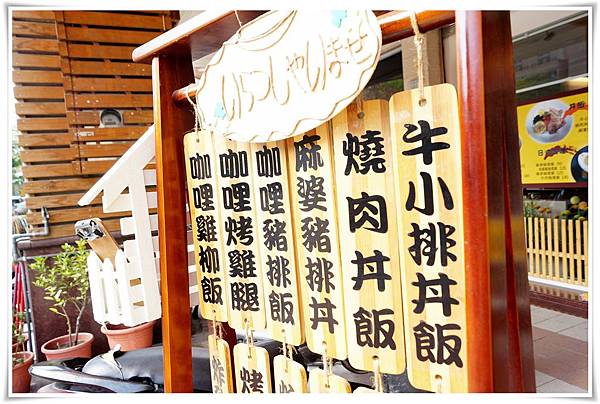 いらっしゃいませ
牛小排丼飯
燒肉丼飯
麻婆豬排丼
咖哩豬排飯
咖哩烤雞腿
咖哩雞柳飯